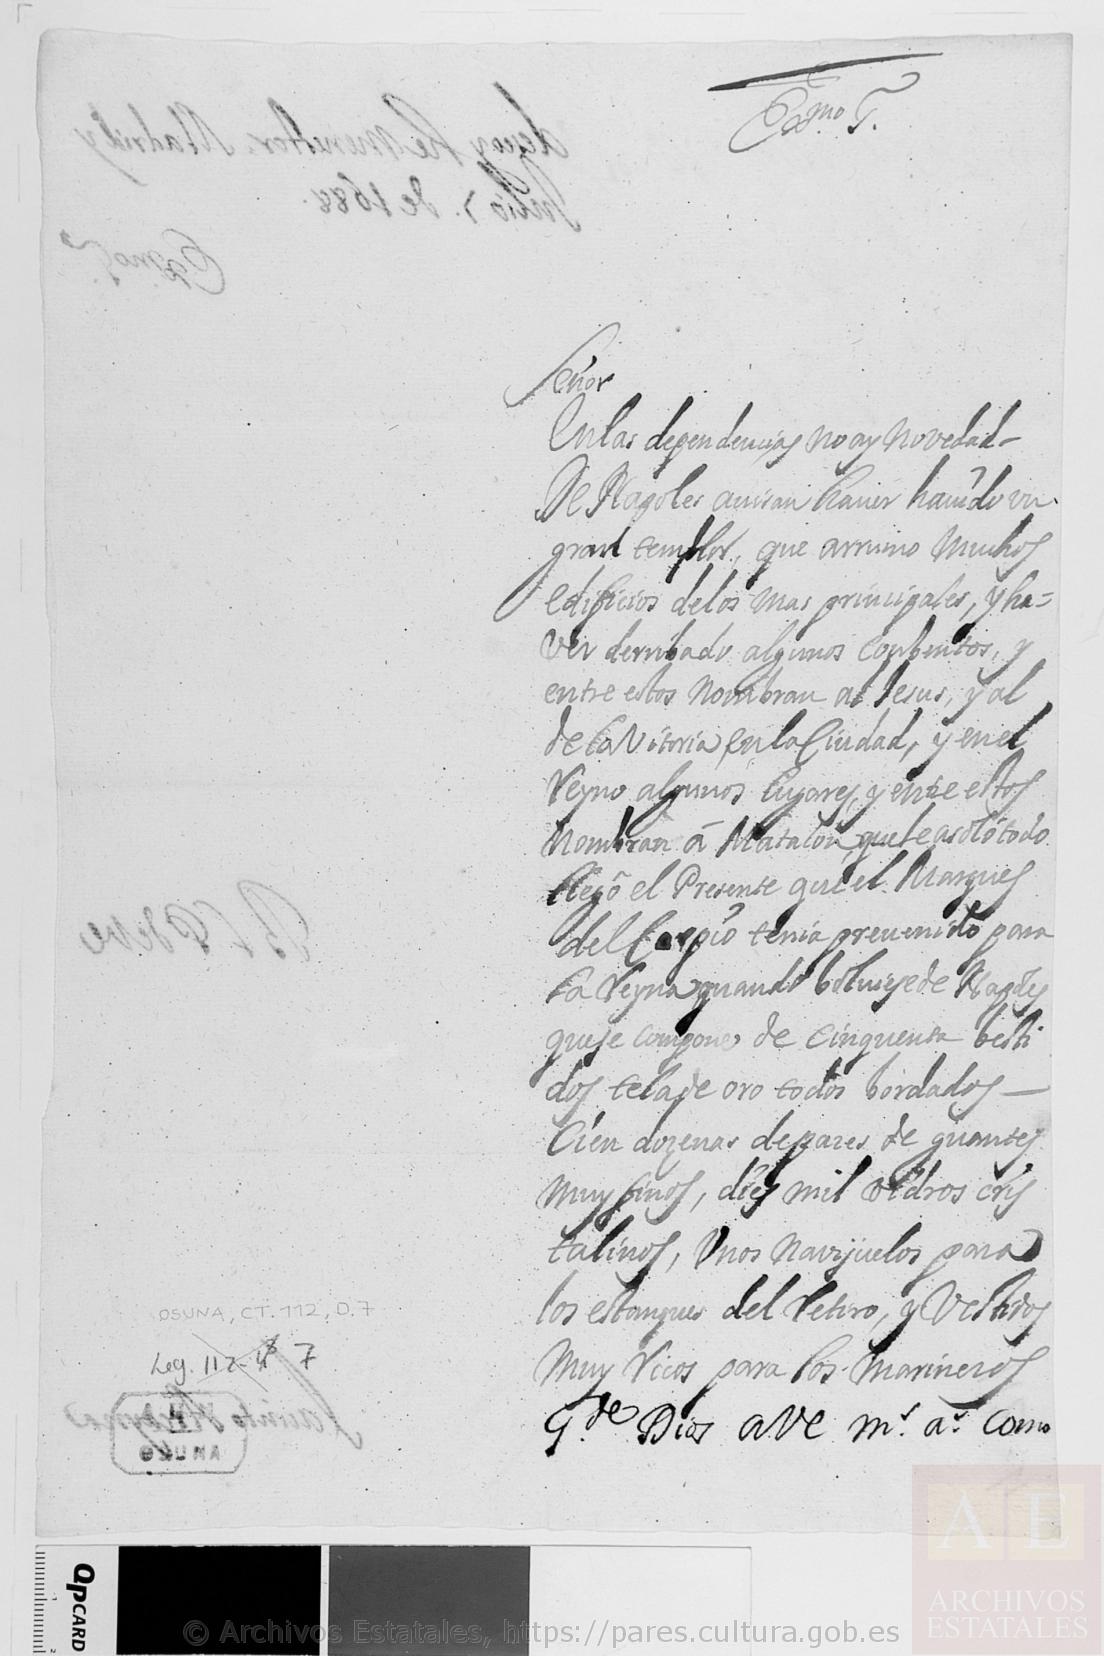 Exmo. S.
Señor
En las dependencias no ay novedad
De Napoles auisan hauer hauido un
gran temblor, que arruino muchos
edificios de los mas principales, y ha=
ver derribado algunos conbentos, y
entre estos nombran al Jesus, y al
de la Vitoria en la Ciudad, y en el
Reyno algunos lugares, y entre estos
nombran â Matalon, que le asoló todo
llegô el Presente que el Marques
del Carpio tenia preuenido para
la Reyna quando boluiese de Napoles
que se compone de cinquenta besti
dos tela de oro todos bordados —
Cien dozenas de pares de guantes
muy finos, diez mil vidros cris
talinos, Unos navijuelos para
los estanques del Retiro, y Vestidos
muy Ricos para los marineros
G.de Dios a VE m.s a.s como
OSUNA, CT. 112, D. 7
Leg. 112-
7
OSUNA
QPCARD
AE
ARCHIVOS
ESTATALES
© Archivos Estatales, https://pares.cultura.gob.es